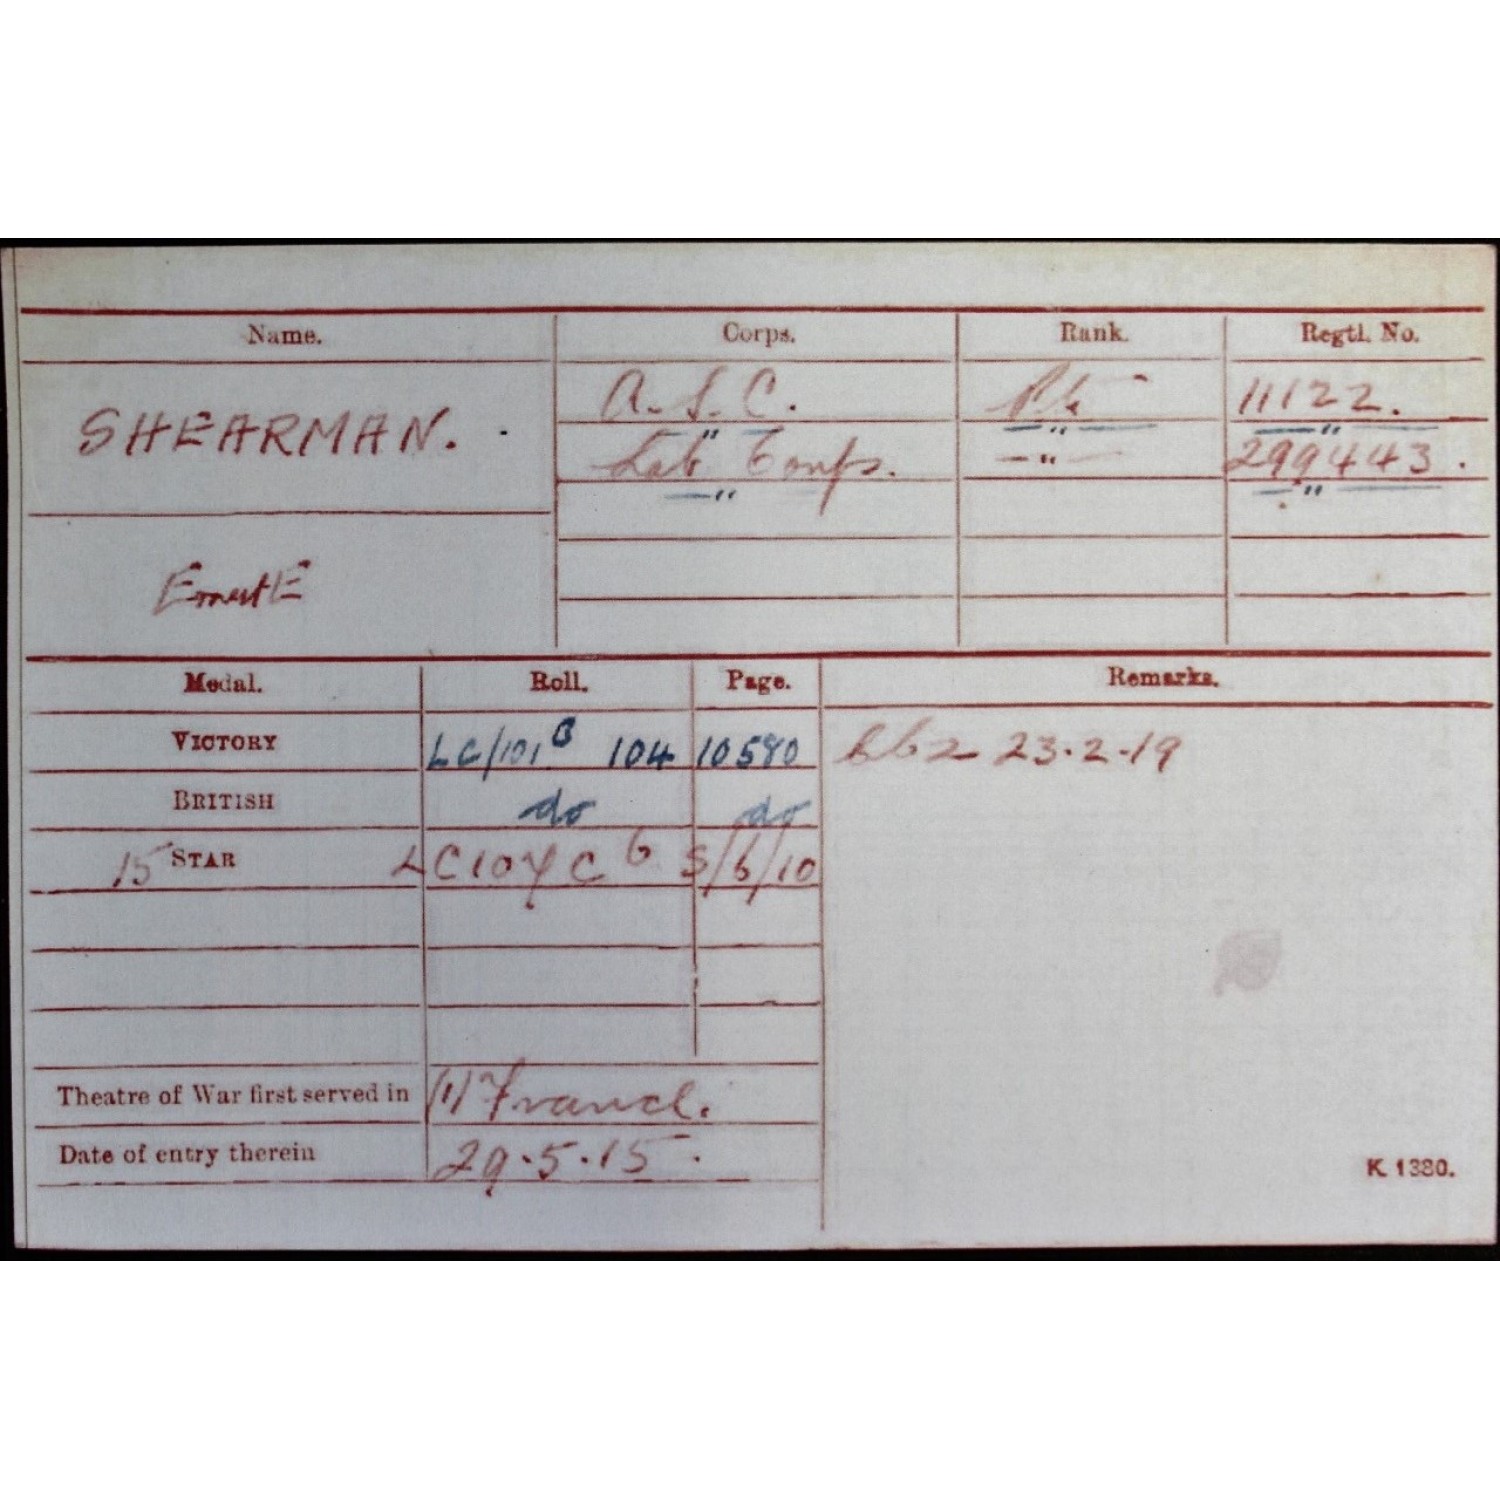 Name. Corps. Rank. Regtl. No.
SHEARMAN. A. S. C. Pte 11122.
" "  "
Lab Corps. — " — 299443.
" "
Ernest E
Medal. Roll. Page. Remarks.
VICTORY LC/101 B 104 10580 23.2.19
BRITISH do do
15 STAR LC 104 C 6 S/6/10
Theatre of War first served in (1) France.
Date of entry therein 29.5.15.
K. 1380.